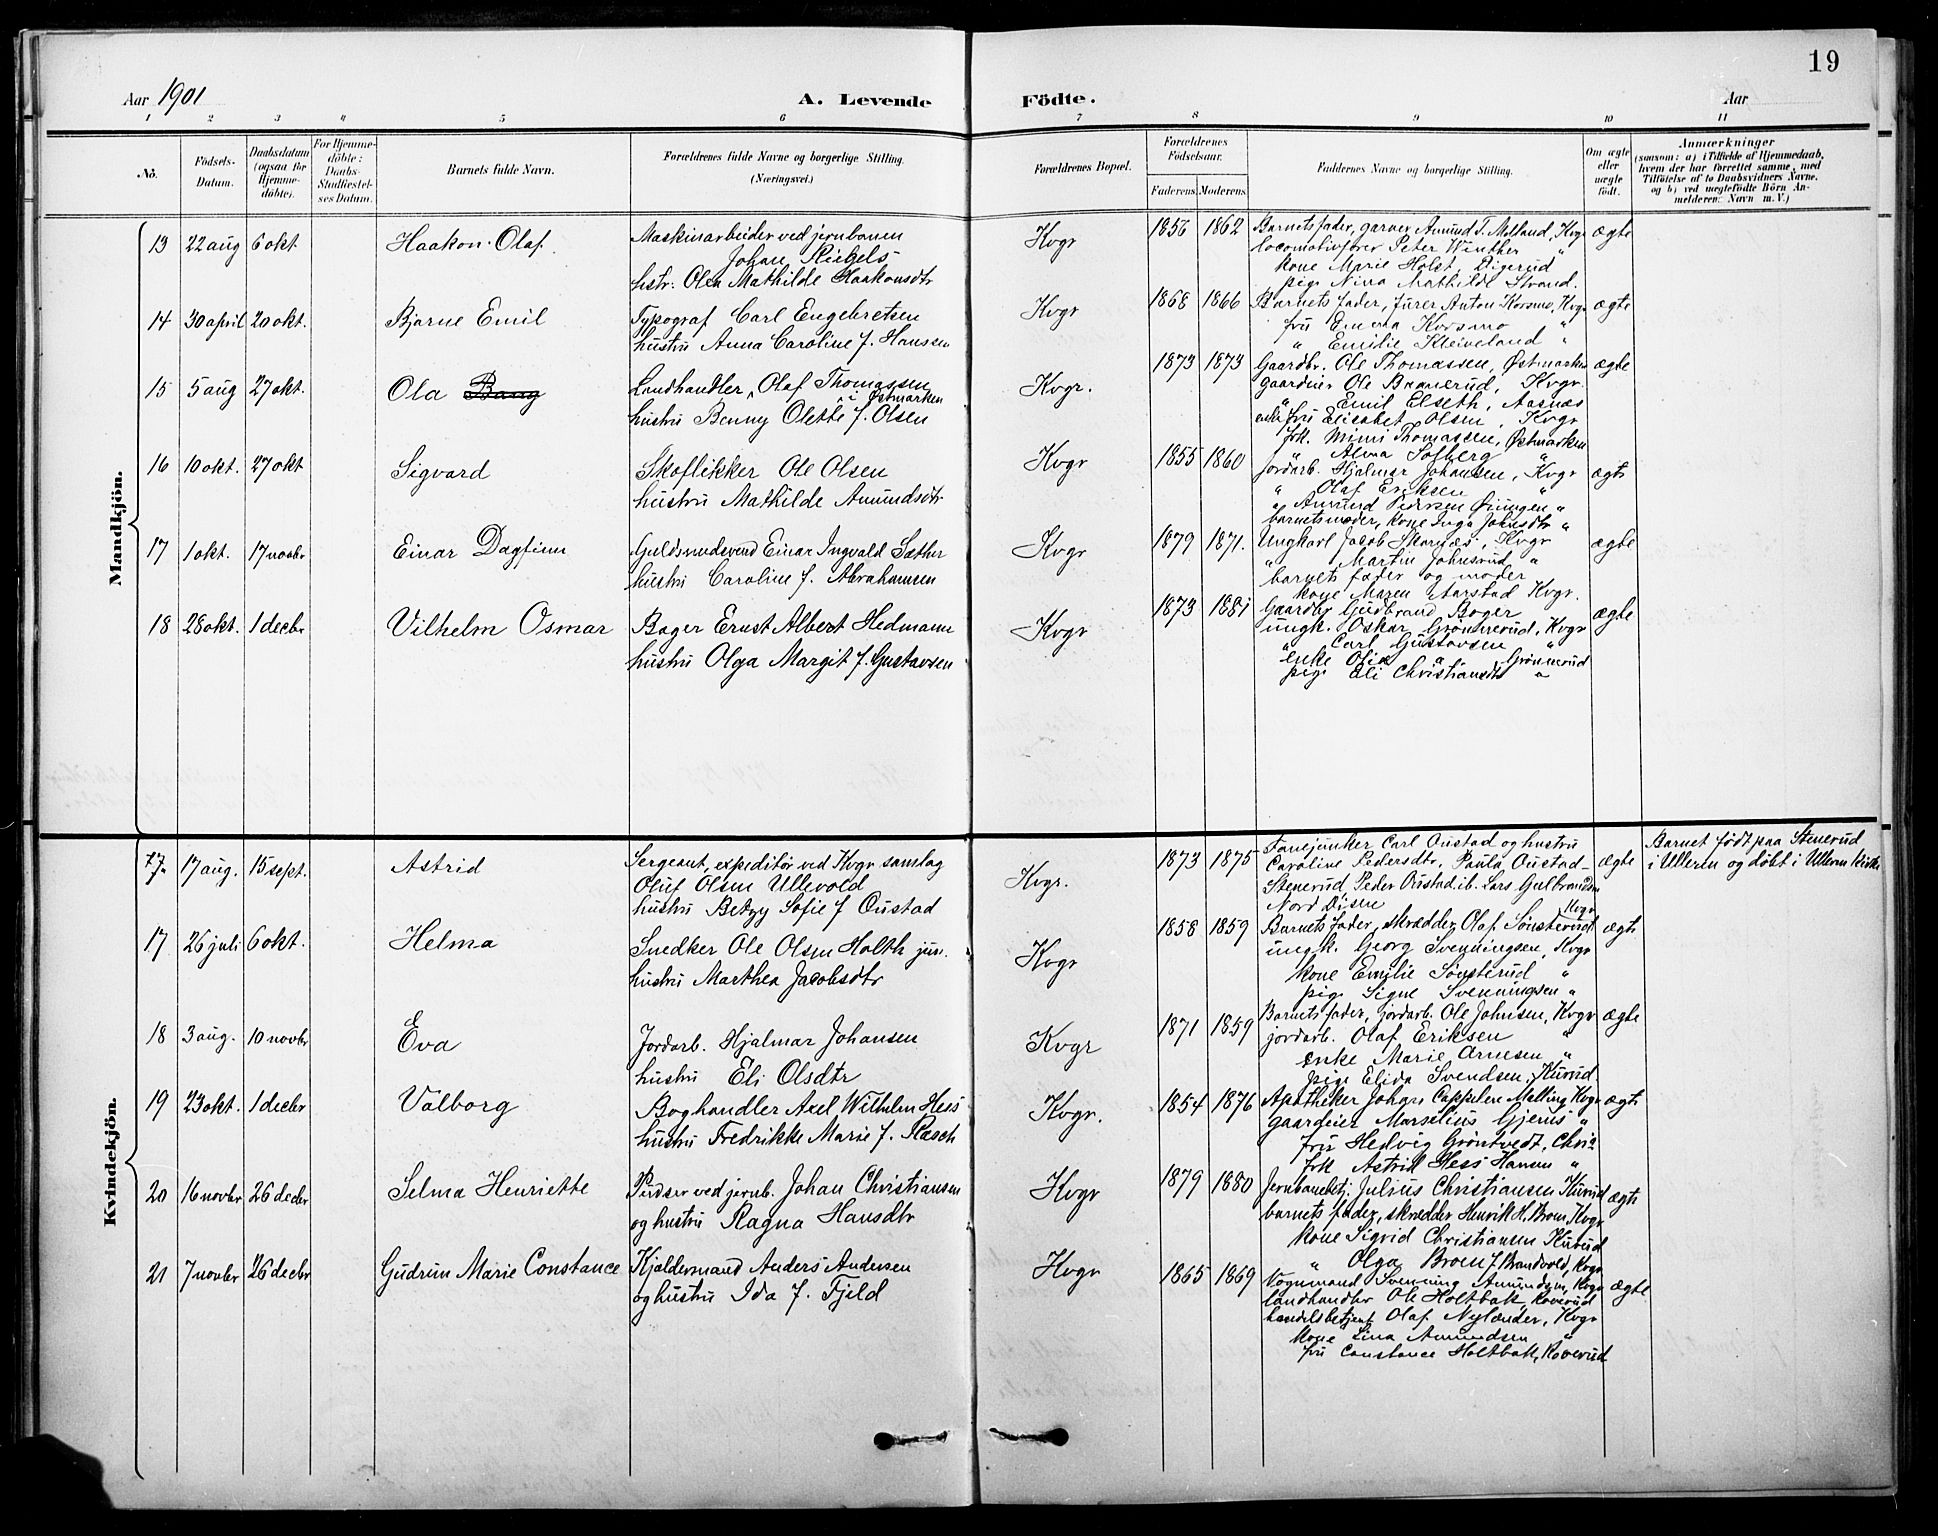 19
Aar 1901
A. Levende Födte.
Aar
1 2 3 4 5 6 7 8 9 10 11
No.
Födsels-Datum.
Daabsdatum (ogsaa for Hjemme-döbte).
For Hjemme-döbte: Daabs-Stadfæstel-ses Datum.
Barnets fulde Navn.
Forældrenes fulde Navne og borgerlige Stilling. (Næringsvei.)
Forældrenes Bopæl.
Forældrenes Födselsaar.
Faderens. Moderens.
Faddernes Navne og borgerlige Stilling.
Om ægte eller uægte født.
Anmærkninger
(saasom: a) i Tilfælde af Hjemmedaab, hvem der har forrettet samme, med Tilföielse af to Daabsvidners Navne, og b) ved uægtefödte Börn An-melderens Navn m. V.)
Mandkjön.
13 22 aug 6 okt Haakon Olaf.
Maskinarbeider ved jernbanen
Johan Riegels
hstr: Olea Mathilde Haakonsdtr
Kvgr 1856 1862
Barnets fader, garver Amund T. Melland, Kvgr
locomotivfører Peter Winther "
kone Marie Holst, Digerud
pige Nina Mathilde Strand.
ægte
14 30 april 20 okt. Bjarne Emil
Typograf Carl Engebretsen
hustru Anna Caroline f. Hanssen
Kvgr 1868 1866
Barnets fader, furer Anton Korsmo, Kvgr
fru Emma Korsmo "
" Emilie Kleiveland "
ægte
15 5 aug 27 okt. Ola Bang
Landhandler Olaf Thomassen
i Østmarken
hustru Benny Olette f. Olsen
Kvgr. 1873 1873
Gaardbr. Ole Thomassen, Østmarken
gaardeier Ole Baanerud, Kvgr.
" Emil Elseth, Aasnæs
enkefru Elisabet Olsen, Kvgr
frk. Mimi Thomassen, Østmarken
" Alma Solberg "
ægte
16 10 okt. 27 okt Sigvard
Skoflikker Ole Olsen
hustru Mathilde Amundsdtr
Kvgr 1855 1860
Jordarb. Hjalmar Johansen, Kvgr
" Olaf Eriksen "
" Amund Pedersen Øiungen "
barnets moder, kone Inga Johnsdtr "
ægte
17 1 okt. 17 novbr Einar Dagfinn
Guldsmedsvend Einar Ingvald Sæther
hustru Caroline f. Abrahamsen
Kvgr 1879 1871.
Ungkarl Jacob Skarnæs, Kvgr
" Martin Johnsrud, "
barnets fader og moder
kone Maren Aarstad Kvgr.
ægte
18 28 okt. 1 decbr Vilhelm Osmar
Bager Ernst Albert Hedmann
hustru Olga Margit f. Gustavsen
Kvgr 1873 1881
Gaardbr Gudbrand Boger
ungk. Oskar Grönnerud, Kvgr
" Carl Gustavsen "
enke Olia " Grönnerud
pige Eli Christiansdtr "
ægte
Kvindekjön.
17. 17 aug. 15 sept. Astrid
Sergeant, expeditör ved Kvgr samlag
Oluf Olsen Ullevold
hustru Betzy Sofie f Oustad
Kvgr. 1873 1875
Fanejunker Carl Oustad og hustru
Caroline Pedersdtr, Paula Oustad
Stenerud, Peder Oustad ib. Lars Gulbrandsen
Nord Disen
ægte
Barnet født paa Stenerud
i Ulleren og döbt i Ullern kirke
17 26 juli 6 okt. Helma
Snedker Ole Olsen Holth jun.
hustru Marthea Jacobsdtr
Kvgr 1858 1859
Barnets fader, skrædder Olaf Sønsterud Kvgr
ungk. Georg Svenningsen, Kvgr
kone Emilie Sønsterud "
pige Signe Svenningsen "
ægte
18 3 aug. 10 novbr Eva
Jordarb. Hjalmar Johansen
hustru Eli Olsdtr
Kvgr 1871 1859
Barnets fader, jordarb. Ole Johnsen, Kvgr
jordarb. Olaf Eriksen "
enke Marie Arnesen "
pige Elida Svendsen, Kurud.
ægte
19 23 okt. 1 decbr Valborg
Boghandler Axel Wilhelm Hess
hustru Fredrikke Marie f. Rasch
Kvgr. 1854 1876
Apotheker Johan Cappelen Malling Kvgr
gaardeier Marselius Gjems "
fru Hedvig Gröntvedt, Chria
frk Astrid Hess Hansen "
ægte
20 16 novbr 26 decbr Selma Henriette
Pudser ved jernb. Johan Christiansen
og hustru Ragna Hansdtr
Kvgr 1879 1880
Jernbanebetj. Julius Christiansen Kurud
barnets fader, skrædder Henrik H. Broen, Kvgr
kone Sigrid Christiansen Kurud
" Olga Broen f. Brandvold, Kvgr
ægte
21 7 novbr 26 decbr Gudrun Marie Constance
Kjældermand Anders Andersen
og hustru Ida f. Fjeld
Kvgr 1865 1869
Vognmand Svenning Amundsen, Kvgr
landhandler Ole Holtbak, Roverud
handelsbetjent Olaf Nylænder, Kvgr
kone Lina Amundsen "
fru Constance Holtbak, Roverud
ægte